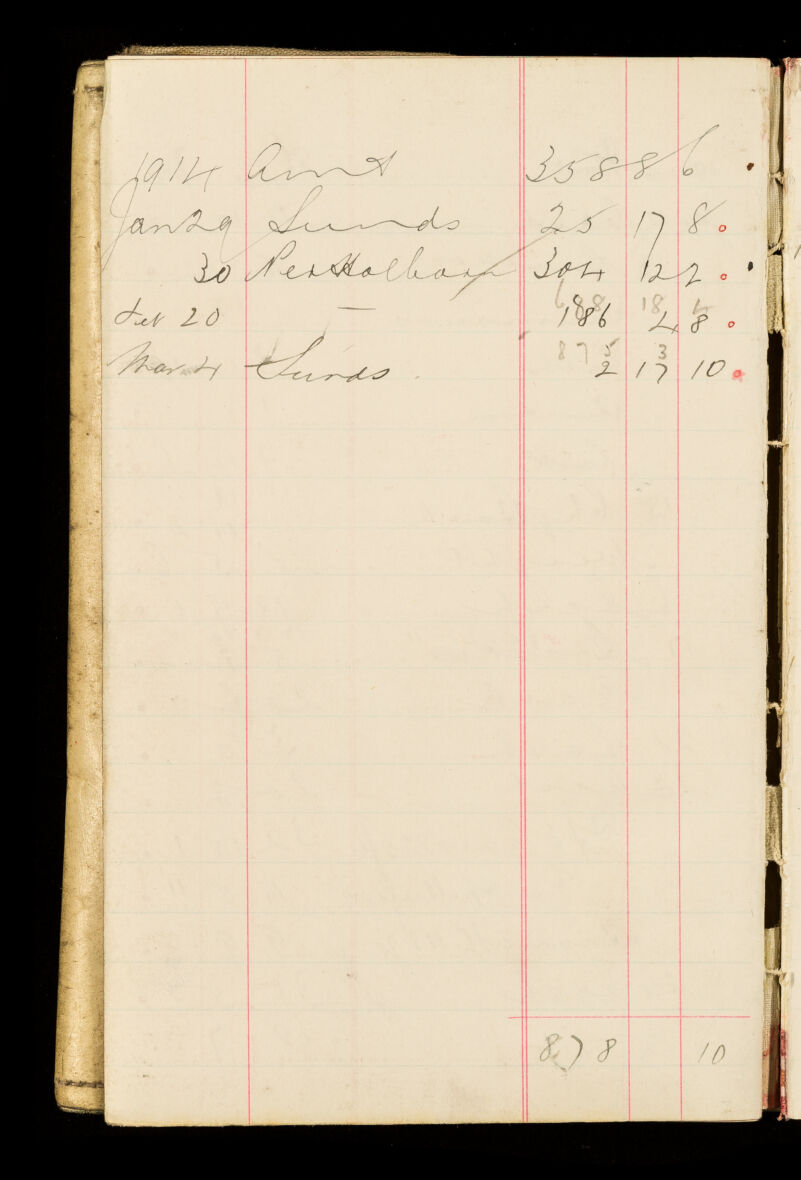 1914 Amt 358 8 6
Jan 29 Sunds 25 17 8
30 Holborn 304 12 2
688 18 4
Feb 20 — 186 4 8
875 3
Mar 4 Sunds. 2 17 10
878 10